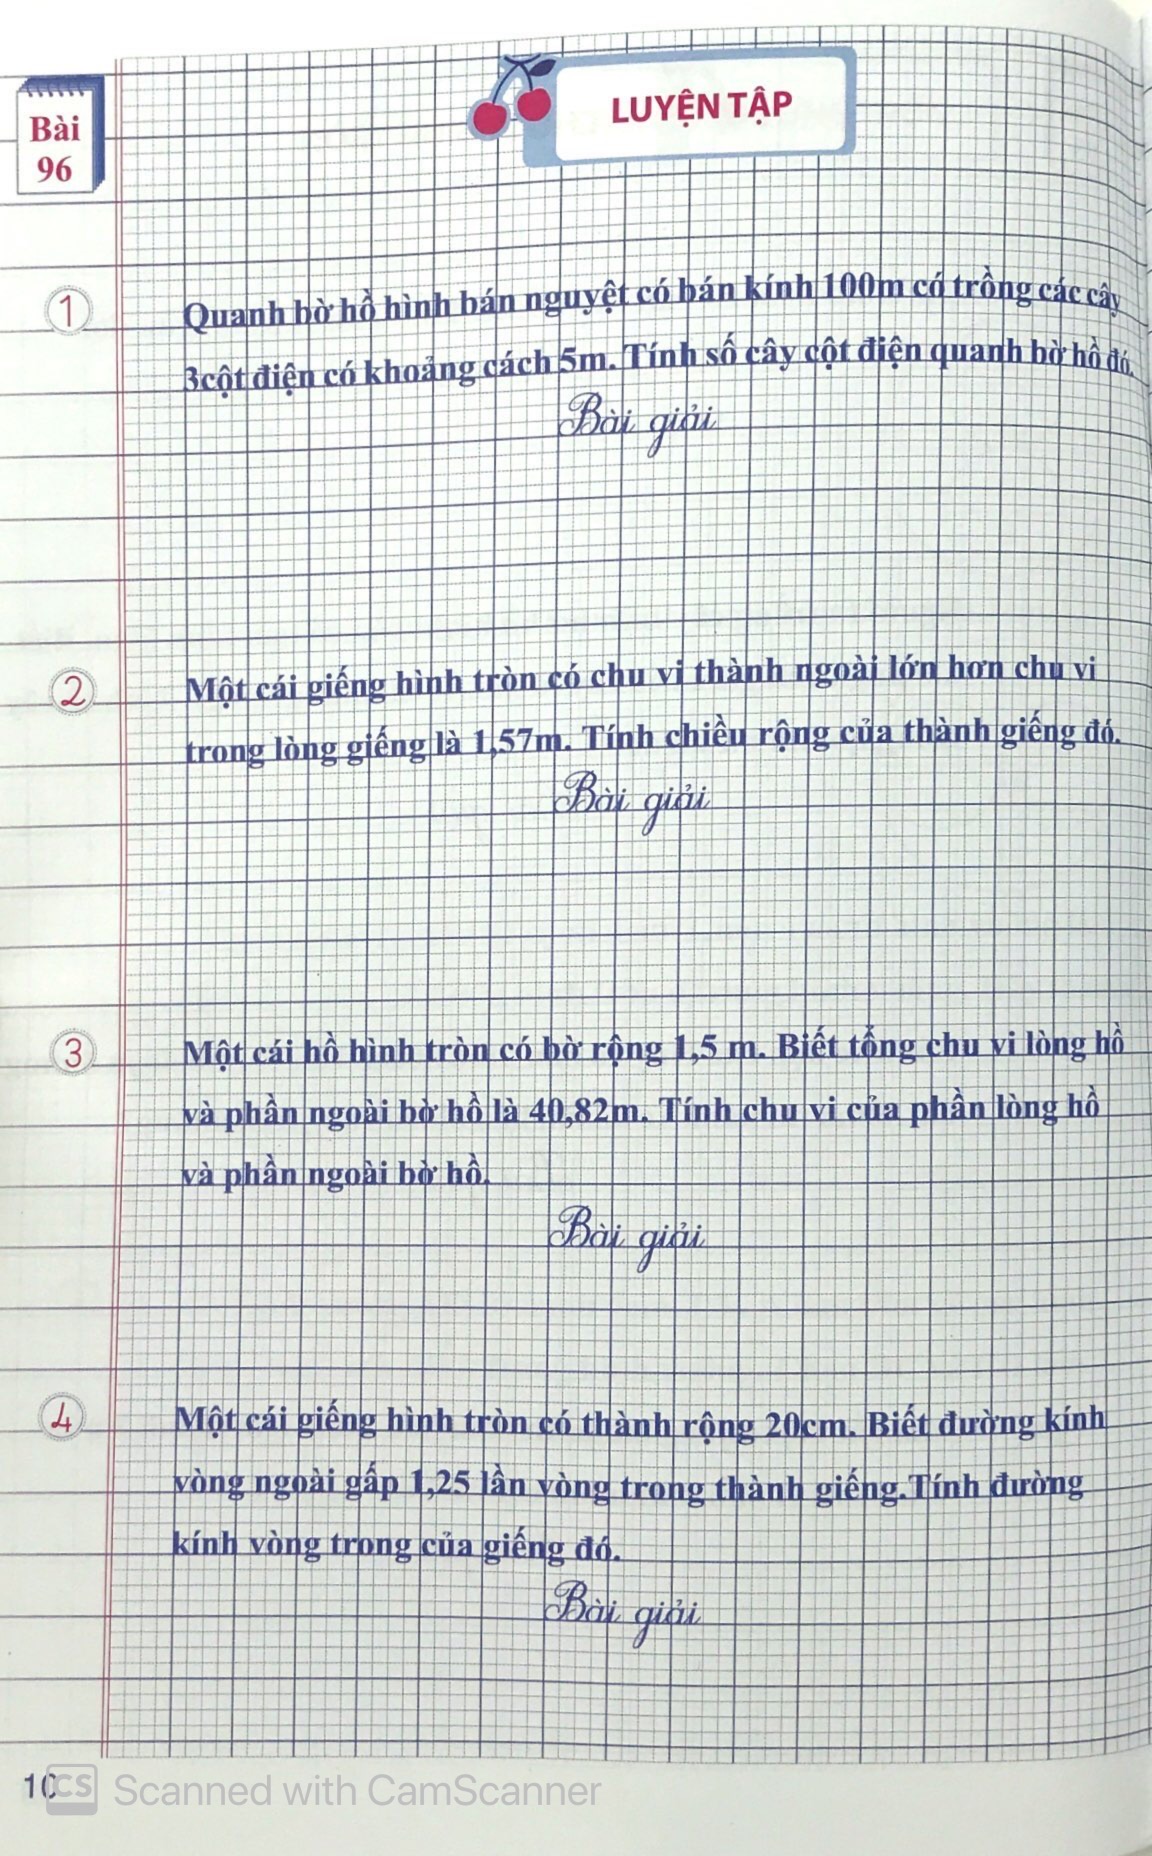 Bài
96
LUYỆN TẬP
1
Quanh bờ hồ hình bán nguyệt có bán kính 100m có trồng các cây
3cột điện có khoảng cách 5m. Tính số cây cột điện quanh bờ hồ đó.
Bài giải
2
Một cái giếng hình tròn có chu vi thành ngoài lớn hơn chu vi
trong lòng giếng là 1,57m. Tính chiều rộng của thành giếng đó.
Bài giải
3
Một cái hồ hình tròn có bờ rộng 1,5 m. Biết tổng chu vi lòng hồ
và phần ngoài bờ hồ là 40,82m. Tính chu vi của phần lòng hồ
và phần ngoài bờ hồ.
Bài giải
4
Một cái giếng hình tròn có thành rộng 20cm. Biết đường kính
vòng ngoài gấp 1,25 lần vòng trong thành giếng.Tính đường
kính vòng trong của giếng đó.
Bài giải
CS Scanned with CamScanner